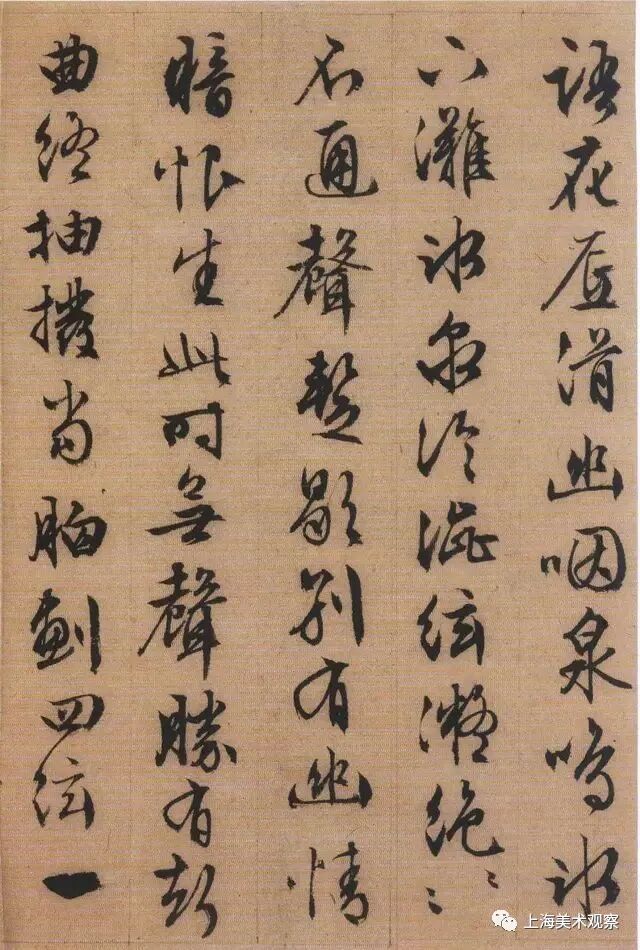 語花底滑幽咽泉鳴冰
下灘冰泉冷澀絃凝絕〻〻
不通聲暫歇別有幽情
暗恨生此時無聲勝有聲
曲終抽撥當胸劃四絃一
上海美术观察